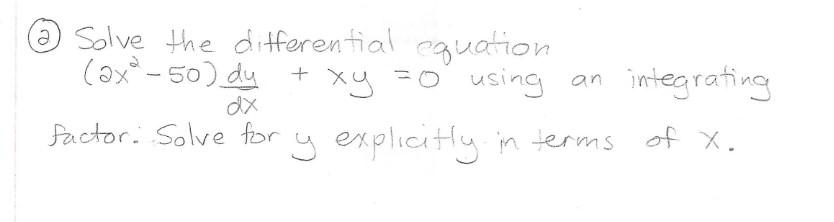 ② Solve the differential equation
(2x² - 50) dy/dx + xy = 0 using an integrating
factor. Solve for y explicitly in terms of x.